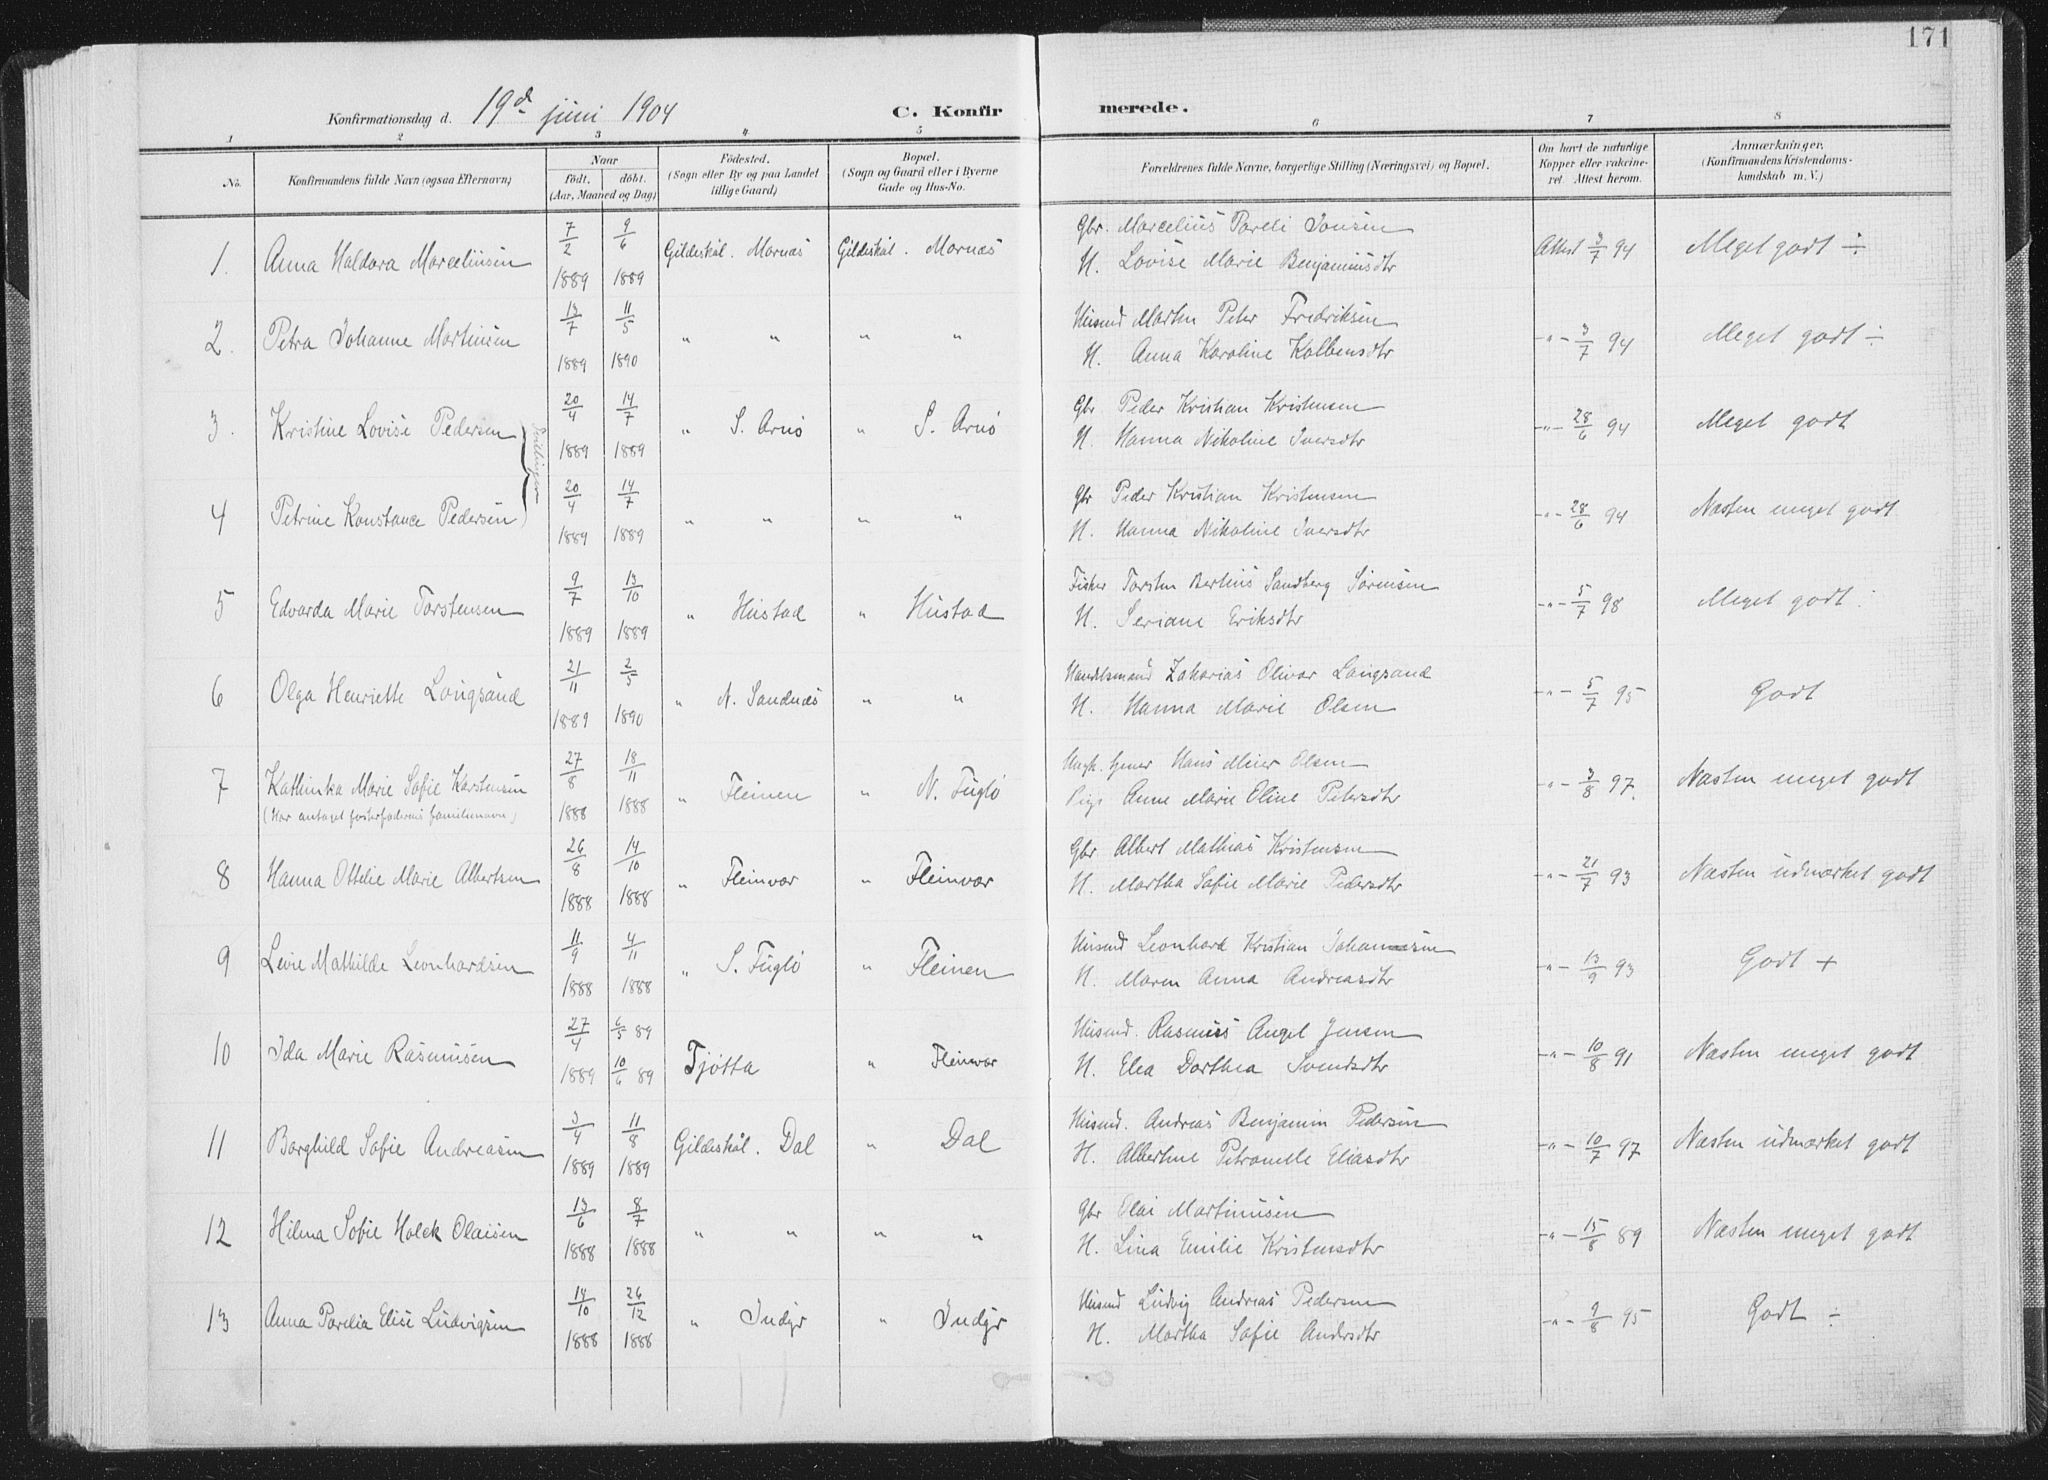 171
Konfirmationsdag d. 19d juni 1904 C. Konfirmerede.
1 2 3 4 5 6 7 8
No. Konfirmandens fulde Navn (ogsaa Efternavn)
Naar
født. døbt.
(Aar, Maaned og Dag)
Fødested.
(Sogn eller By og paa Landet tillige Gaard)
Bopæl.
(Sogn og Gaard eller i Byerne Gade og Hus-No.
Forældrenes fulde Navne, borgerlige Stilling (Næringsvei) og Bopæl.
Om havt de naturlige Kopper eller vakcineret. Attest herom.
Anmærkninger.
(Konfirmandens Kristendomskundskab m.V.)
1. Anna Haldora Marcelinsen 7/2 1889 9/6 1889 Gildeskål. Mornæs Gildeskål. Mornæs Gbr. Marcelius Pareli Jonsen Attest 3/7 94 Meget godt ÷
H. Lovise Marie Benjaminsdtr
2. Petra Johanne Martinsen 13/7 1889 11/5 1890 " " " " Husmd Martin Peter Fredriksen -"- 3/7 94 Meget godt ÷
H. Anna Karoline Kolbensdtr
3. Kristine Lovise Pedersen 20/4 1889 14/7 1889 " S. Arnö " S. Arnö Gbr. Peder Kristian Kristensen -"- 28/6 94 Meget godt
H. Hanna Nikoline Iversdtr
Tvillinger
4 Petrine Konstance Pedersen 20/4 1889 14/7 1889 " " " " Gbr Peder Kristian Kristensen -"- 28/6 94 Næsten meget godt
H. Hanna Nikoline Iversdtr
5 Edvarda Marie Torstensen 9/7 1889 13/10 1889 " Hustad " Hustad Fisker Torsten Bertius Sandberg Sörensen -"- 5/7 98 Meget godt
H. Seriane Eriksdtr
6 Olga Henriette Langsand 21/11 1889 2/5 1890 " N. Sandnæs " " Handelsmand Zakarias Olivar Langsand -"- 5/7 95 Godt
H. Hanna Marie Olsen
7 Kathinka Marie Sofie Karstensen 27/8 1888 18/11 1888 " Fleinen " N. Fuglö Ungk. Hans Meier Olsen -"- 3/8 97. Næsten meget godt
(Har antaget fosterfaderens familienavn) Pige Anne Marie Oline Petersdtr
8 Hanna Ottelie Marie Albertsen 26/8 1888 14/10 1888 " Fleinvær " Fleinvær Gbr Albert Mathias Kristensen -"- 21/7 93 Næsten udmærket godt
H. Martha Sofie Marie Pedersdtr
9 Leine Mathilde Leonhardsen 11/9 1888 4/11 1888 " S. Fuglö " Fleinen Husmd Leonhard Kristian Johannesen -"- 13/9 93 Godt +
H. Maren Anna Andreasdtr
10 Ida Marie Rasmussen 27/4 1889 6/5 89 10/6 89 Tjötta " Fleinvær Husmd. Rasmus Angel Jensen -"- 10/8 91 Næsten meget godt
H. Elea Dorthea Svendsdtr
11 Borghild Sofie Andreasen 3/4 1889 11/8 1889 Gildeskål. Dal " Dal Husmd. Andreas Benjamin Pedersen -"- 10/7 97 Næsten udmærket godt
H. Albertine Petronelle Eliasdtr
12 Hilma Sofie Holck Olaisen 13/6 1888 8/7 1888 " " " " Gbr Olai Martinusen -"- 15/8 89 Næsten meget godt
H. Lina Emilie Kristensdtr
13 Anna Parelia Elise Ludvigsen 14/10 1888 26/12 1888 " Indyr " Indyr Husmd Ludvig Andreas Pedersen -"- 9/8 95 Godt ÷
H. Martha Sofie Andersdtr